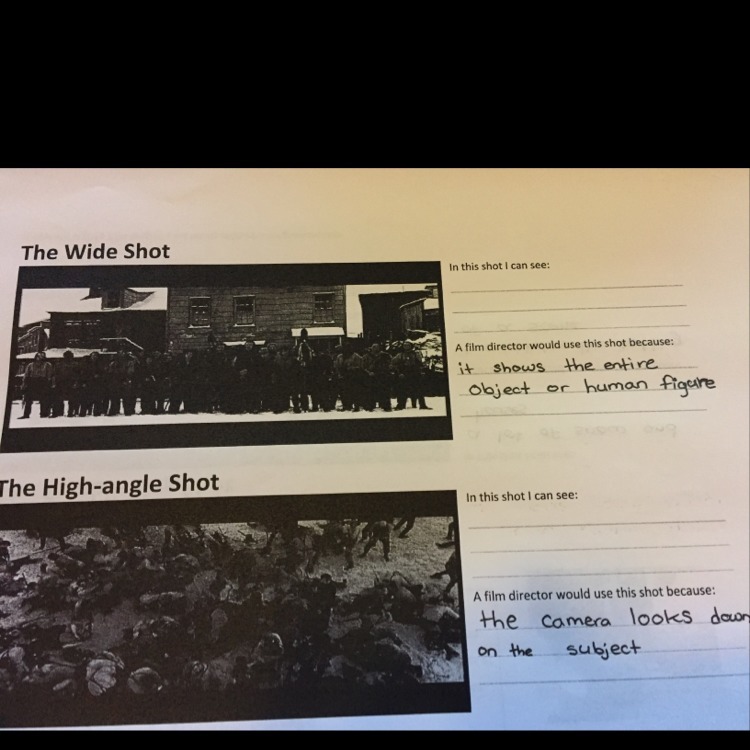 The Wide Shot
In this shot I can see:
A film director would use this shot because:
it shows the entire
object or human figure
The High-angle Shot
In this shot I can see:
A film director would use this shot because:
the camera looks down
on the subject